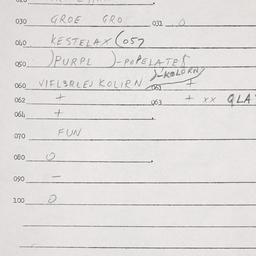 030 GROE GRO 031 0
040 KESTELAX (057
050 )PURPL )-POPELATES
)-KOLORN
060 VIFLBRLEN KOLIRN 061 +
062 + 063 + xx GLA
064 +
070 FUN
080 0
090 –
100 0